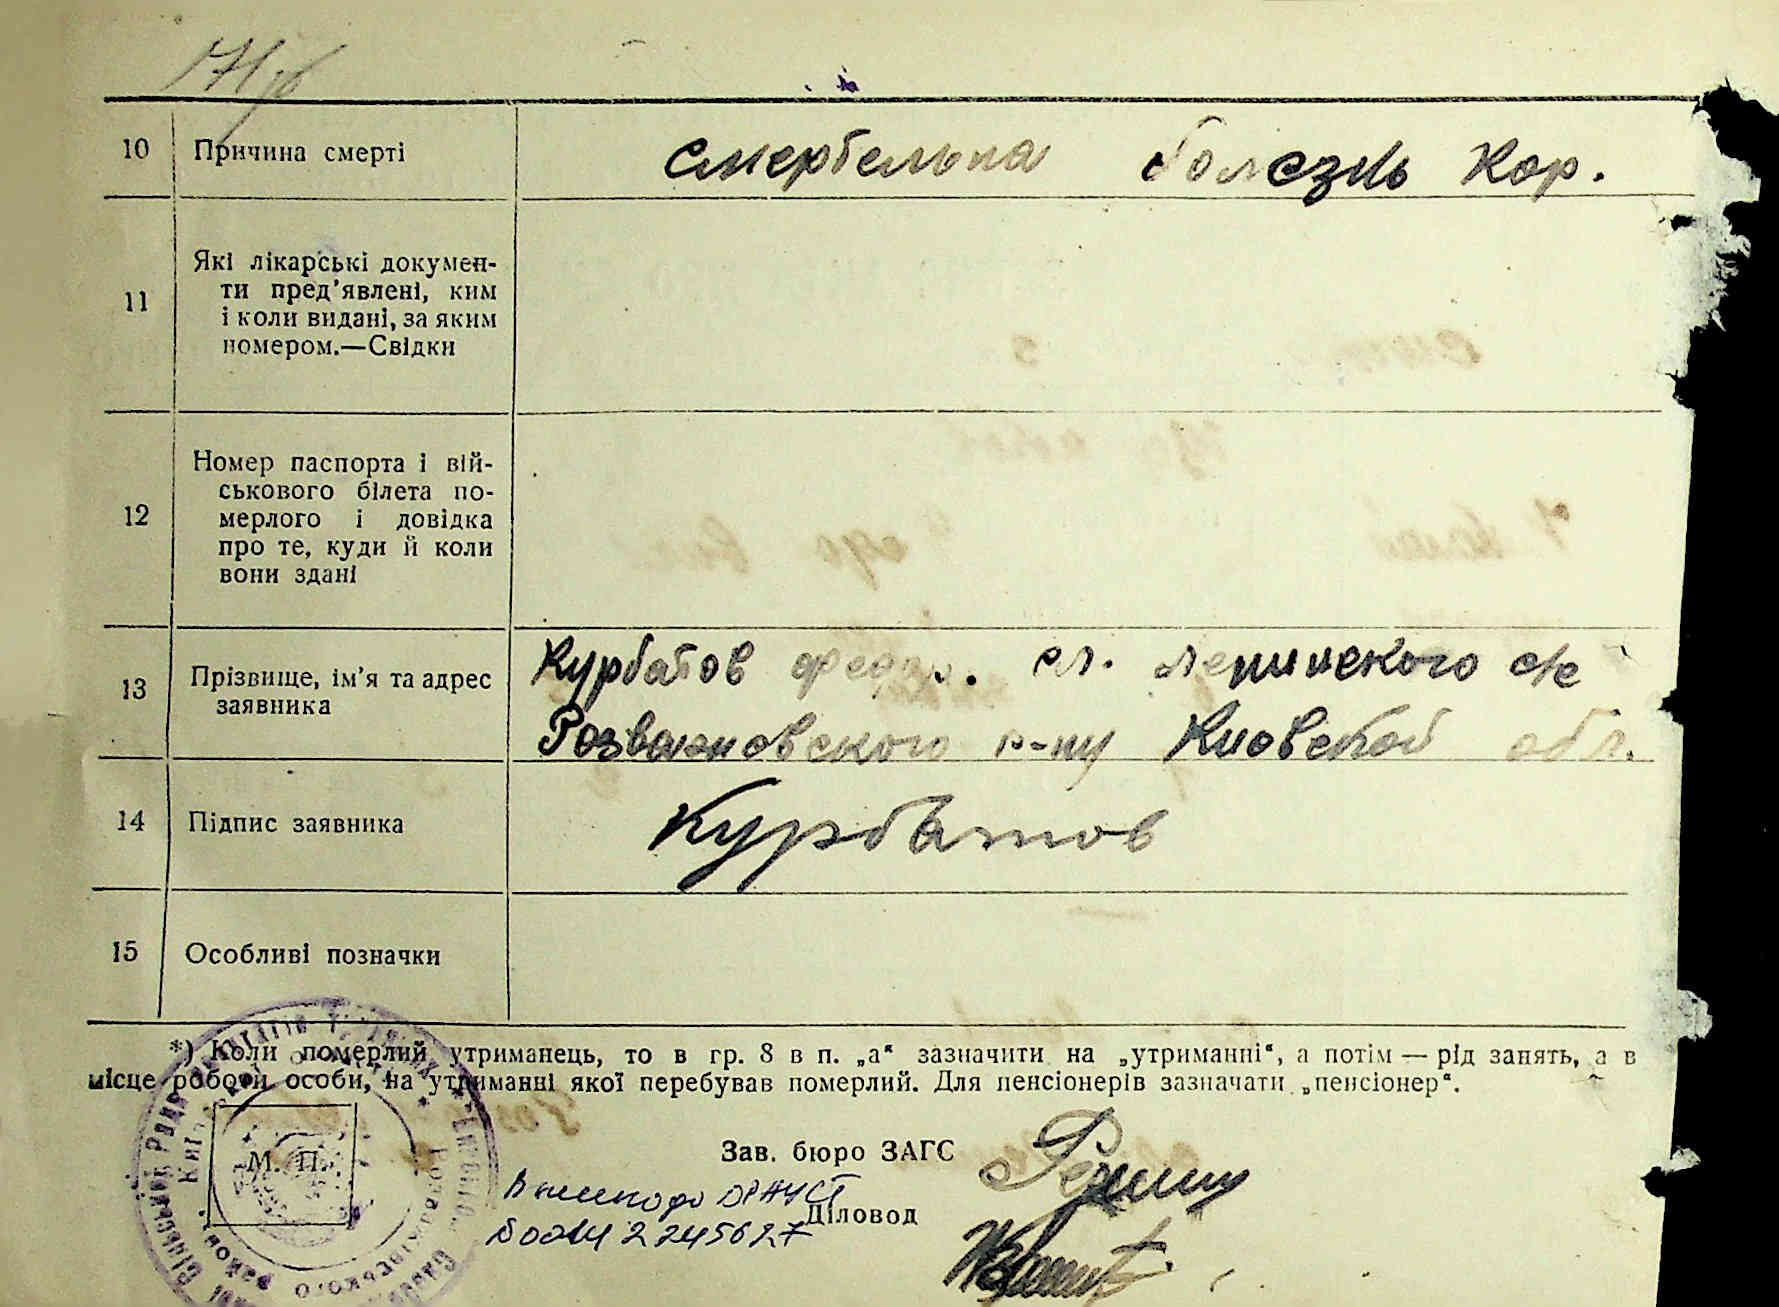 171
10 Причина смерті смертельна болезнь кор.
11 Які лікарські докумен-
ти пред'явлені, ким
і коли видані, за яким
номером.—Свідки
12 Номер паспорта і вій-
ськового білета по-
мерлого і довідка
про те, куди й коли
вони здані
13 Прізвище, ім'я та адрес
заявника
Курбатов сл. ленинского с/с
Розважовского р-ну Киевской обл.
14 Підпис заявника Курбатов
15 Особливі позначки
*) Коли померлий утриманець, то в гр. 8 в п. „а“ зазначити на „утриманні“, а потім — рід занять, а в
місце роботи особи, на утриманні якої перебував померлий. Для пенсіонерів зазначати „пенсіонер“.
М. П.
Зав. бюро ЗАГС
ДРАЦС
Діловод
2245627